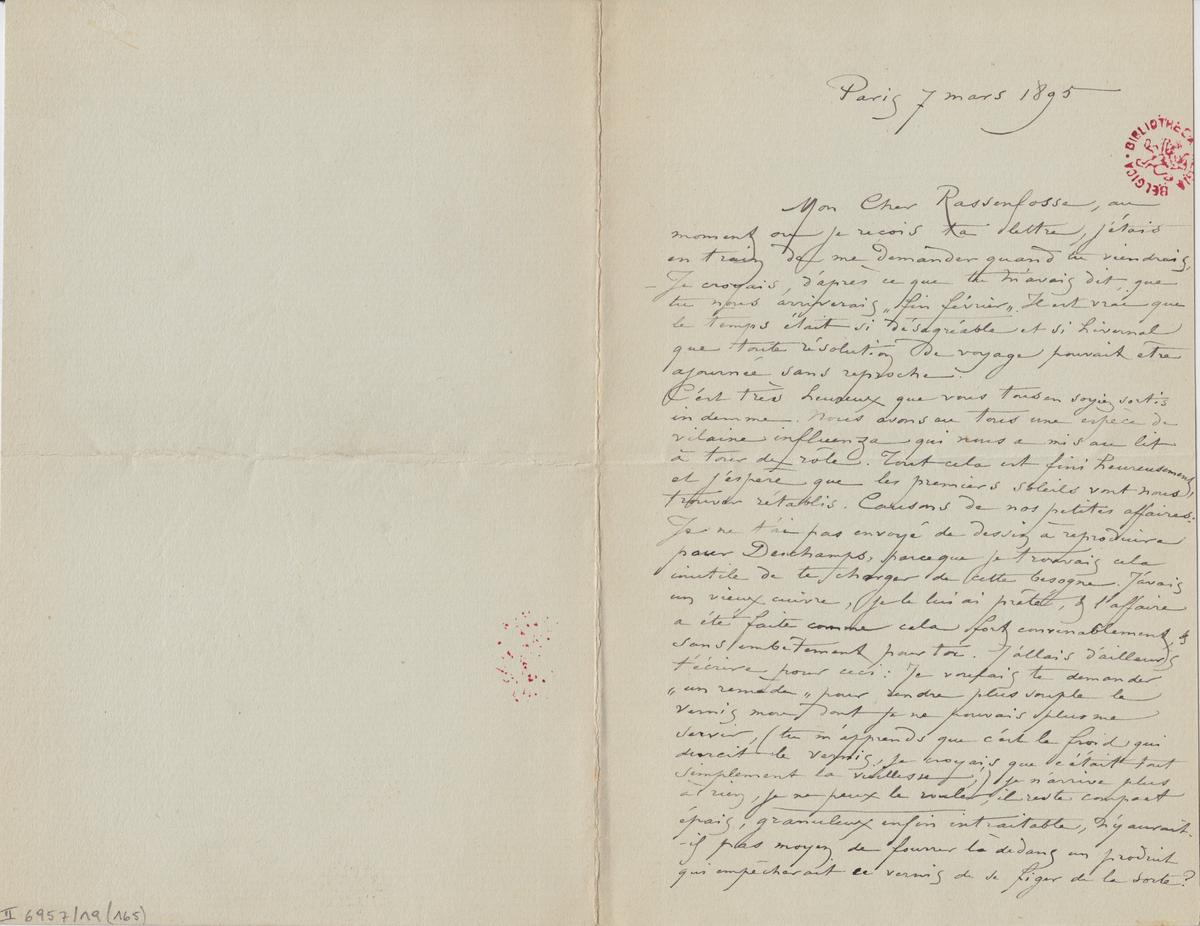 Paris 7 mars 1895
BIBLIOTHECA REGIA BELGICA
Mon Cher Rassenfosse, au
moment ou je recois ta lettre, j'étais
en train de me demander quand tu viendrais,
- Je croyais, d'après ce que tu m'avais dit, que
tu nous arriverais „fin février". Il est vrai que
le temps était si désagréable et si hivernal
que toute résolution de voyage pouvait être
ajournée sans reproche.
C'est très heureux que vous tous en soyiez sortis
indemme. Nous avons eu tous une espèce de
vilaine influenza qui nous a mis au lit
à tour de rôle. Tout cela est fini heureusement,
et j'espère que les premiers soleils vont nous
trouver rétablis. Causons de nos petites affaires:
Je ne t'ai pas envoyé de dessin à reproduire
pour Deschamps, parceque je trouvais cela
inutile de te charger de cette besogne. J'avais
un vieux cuivre, je le lui ai prêté, & l'affaire
a été faite comme cela fort convenablement, &
sans embêtement pour toi. J'allais d'ailleurs
t'écrire pour ceci: Je voulais te demander
„un remède" pour rendre plus souple le
vernis mou dont je ne pouvais plus me
servir, (tu m'apprends que c'est le froid qui
durcit le vernis, je croyais que c'était tout
simplement la vieillesse,) je n'arrive plus
à rien, je ne peux le rouler, il reste compact
épais, granuleux enfin intraitable, n'y aurait-
-il pas moyen de fourrer là dedans un produit
qui empêcherait ce vernis de se figer de la sorte?
II 6957/19 (165)